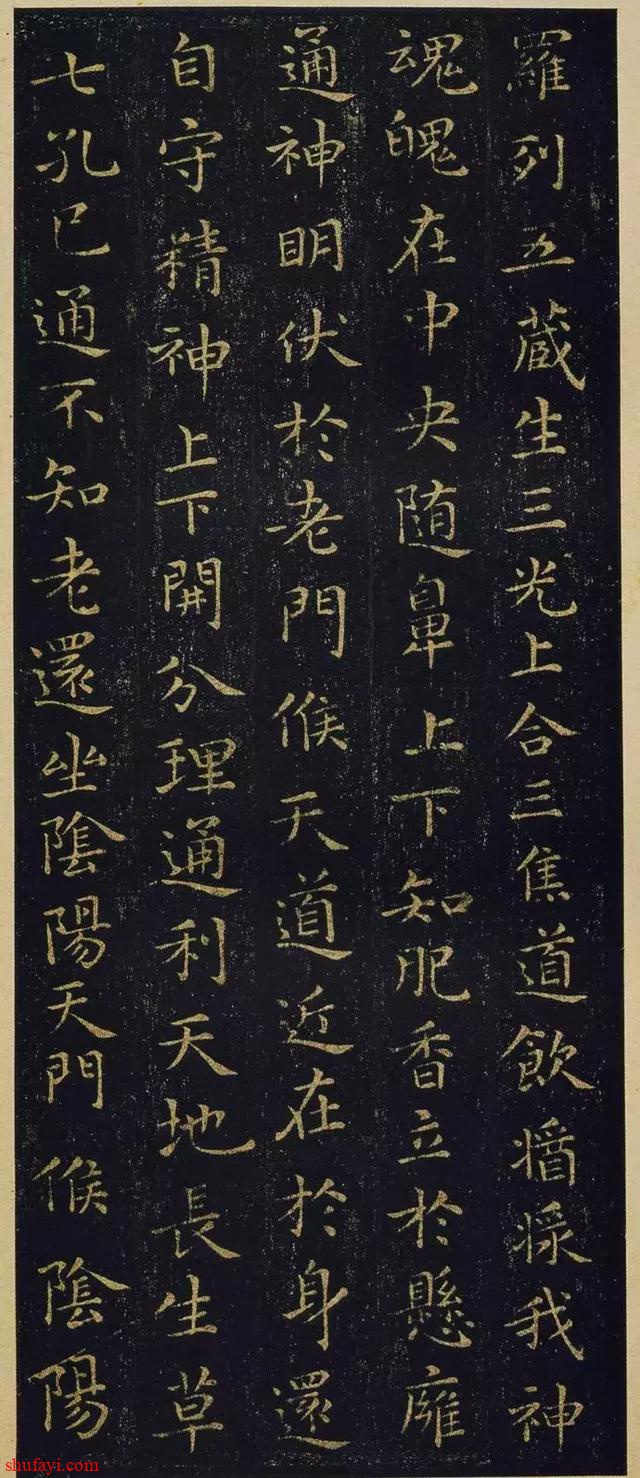 羅列五蔵生三光上合三焦道飲醬㵩我神
魂魄在中央随鼻上下知肥香立於懸癕
通神明伏於老門候天道近在於身還
自守精神上下開分理通利天地長生草
七孔已通不知老還坐陰陽天門候陰陽
shufayi.com